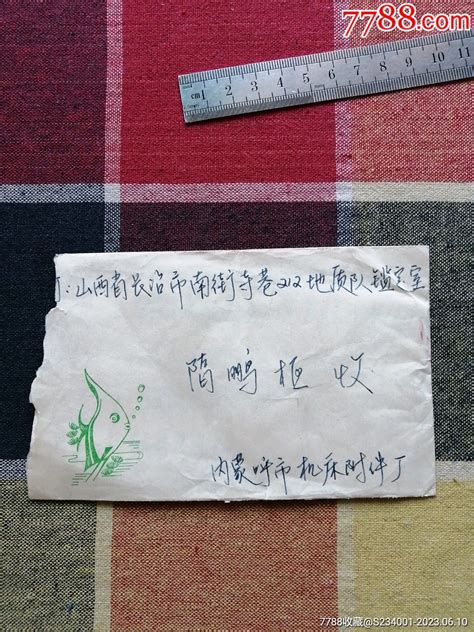 7788.com
cm 1 2 3 4 5 6 7 8 9 10 11
寄:山西省长治市南街寺巷212地质队鉴定室
隋鹏枢 收
内蒙呼市机床附件厂
7788收藏@S234001-2023.06.10